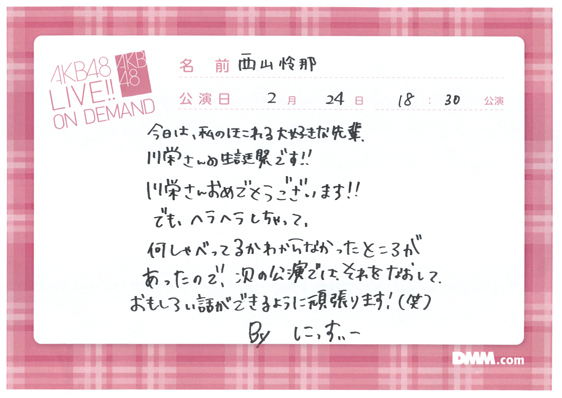 AKB48
LIVE!!
ON DEMAND
AKB
48
名前 西山怜那
公演日 2月 24日 18:30 公演
今日は、私のほこれる大好きな先輩、
川栄さんの生誕祭です!!
川栄さんおめでとうございます!!
でも、ヘラヘラしちゃって、
何しゃべってるかわからなかったところが
あったので、次の公演では、それをなおして、
おもしろい話ができるように頑張ります!(笑)
By にっすぃー
DMM.com